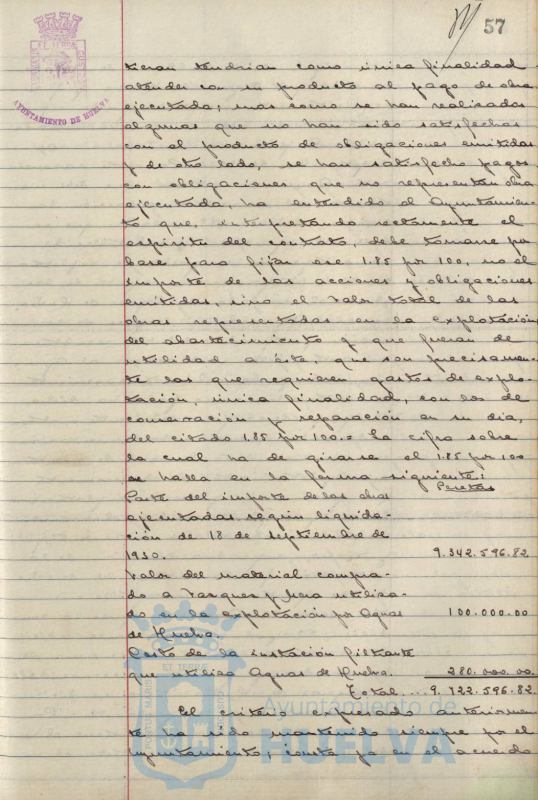 57
AYUNTAMIENTO DE HUELVA
tieran tendrian como única finalidad
atender con su producto al pago de obra
ejecutada; mas como se han realizado
algunas que no han sido satisfechas
con el producto de obligaciones emitidas
y de otro lado, se han satisfecho pagos
con obligaciones que no representan obra
ejecutada, ha entendido el Ayuntamien-
to que, interpretando rectamente el
espiritu del contrato, debe tomarse por
base para fijar ese 1.85 por 100, no el
importe de las acciones y obligaciones
emitidas, sino el valor total de las
obras representadas en la explotación
del abastecimiento y que fueran de
utilidad a éste, que son precisamen-
te las que requieren gastos de explo-
tación, única finalidad, con los de
conservación y reparación en su dia,
del citado 1.85 por 100.= La cifra sobre
la cual ha de girarse el 1.85 por 100
se halla en la forma siguiente:
Pesetas
Parte del importe de las obras
ejecutadas según liquida-
ción de 18 de septiembre de
1930. 9.342.596.82
Valor del material compra-
do a Vazquez y Vera utiliza-
do en la explotación por Aguas 100.000.00
de Huelva.
Costo de la instación filtrante
que utiliza Aguas de Huelva. 280.000.00
Total... 9.722.596.82
El criterio expresado anteriormen-
te ha sido mantenido siempre por el
Ayuntamiento; consta ya en el acuerdo
Ayuntamiento de
HUELVA